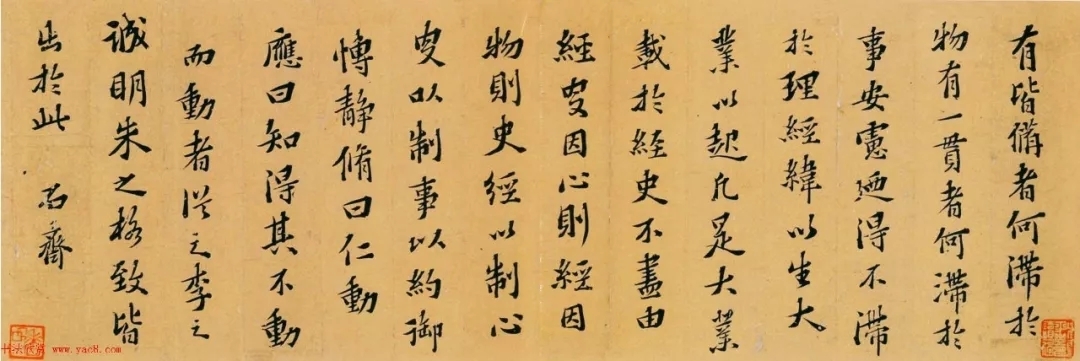 有皆備者何滯於
物有一貫者何滯於
事安慮迺得不滯
於理經緯以生大
業以起凡是大業
載於經史不盡由
經史因心則經因
物則史經以制心
史以制事以約御
慱靜脩曰仁動
應曰知得其不動
而動者從之李之
誠明朱之格致皆
出於此 尚齋
www.yac8.com